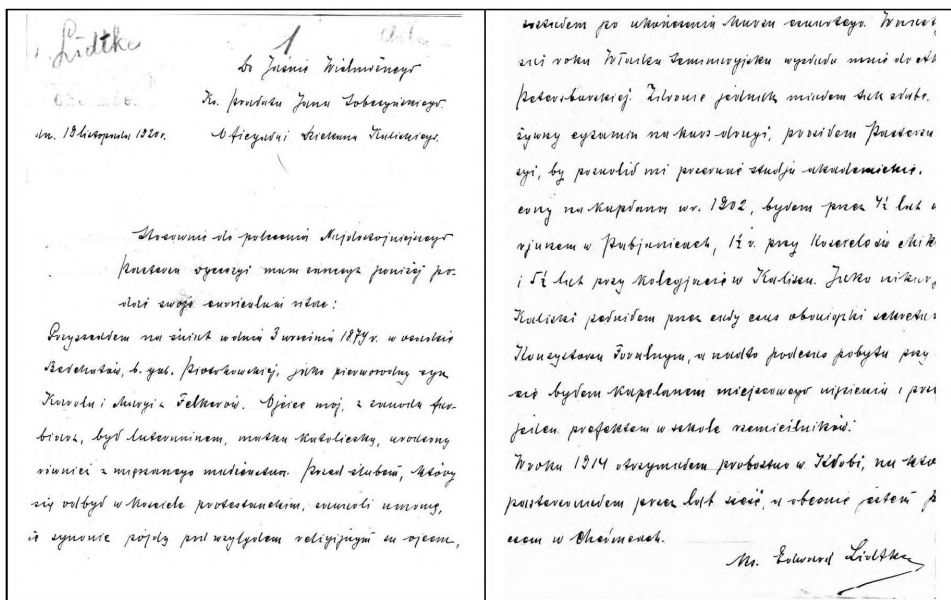 Lidtke
1
Do Jaśnie Wielmożnego
Ks. Prałata Jana Sobczyńskiego
dn. 19 listopada 1920 r. Oficjała i Dziekana Kaliskiego.
Stosownie do polecenia Najdostojniejszego
Pasterza dyecezyi mam zaszczyt poniżej po-
dać swoje curriculum vitae:
Przyszedłem na świat w dniu 3 września 1879 r. w osadzie
Bełchatów, b. gub. Piotrkowskiej, jako pierworodny syn
Karola i Maryi z Felkerów. Ojciec mój, z zawodu far-
biarz, był luteraninem, matka katoliczką, urodzoną
również z mięszanego małżeństwa. Przed ślubem, który
się odbył w kościele protestanckim, zawarli umowę,
iż synowie pójdą pod względem religijnym za ojcem,
zostałem po ukończeniu kursu czwartego. W
roku Władza Seminaryjska wysłała mnie do
Petersburskiej. Zdrowie jednak miałem tak słabe,
egzamin na kurs drugi, prosiłem Pasterza
by pozwolił mi przerwać studja akademickie.
cony na kapłana w r. 1902, byłem przez 4½ lat
rjuszem w Pabjanicach, 1½ r. przy Kościele św. Mik
i 5½ lat przy Kolegjacie w Kaliszu. Jako
Kaliski pełniłem przez cały czas obowiązki sekretar
Konsystorza Foralnym, a nadto podczas pobytu przy
się byłem kapelanem miejscowego więzienia i przez
jeden prefektem w szkole rzemieślników.
W roku 1914 otrzymałem probostwo w Kłobi, na któ
pasterzowałem przez lat sześć, a obecnie jestem
czem w Chełmcach.
Ks. Edward Lidtke